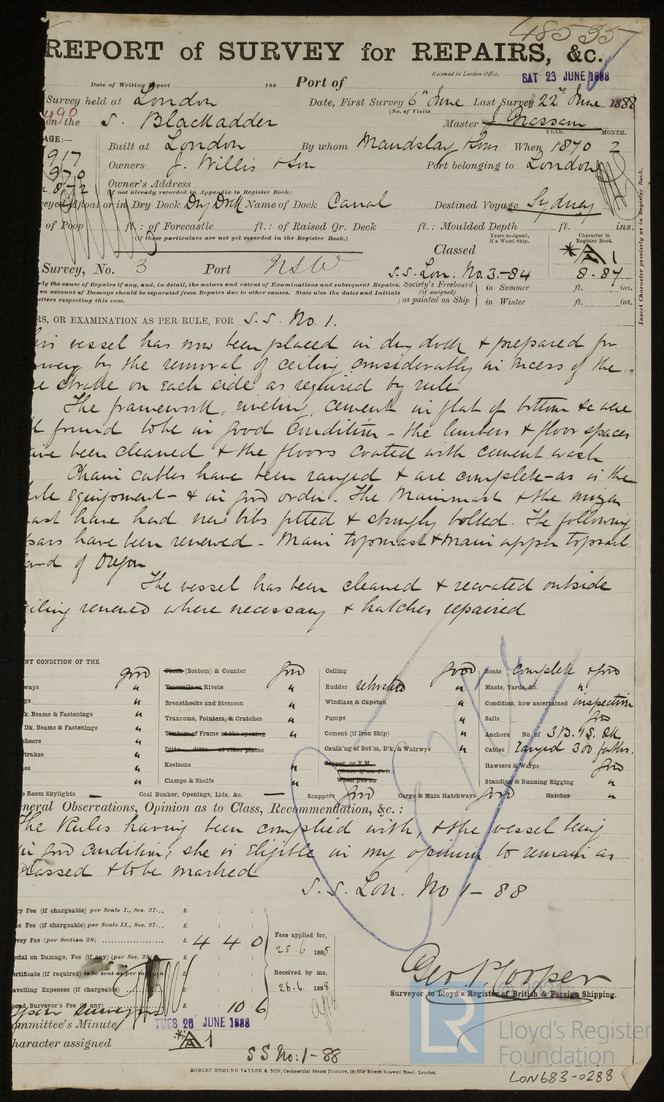 48535
REPORT of SURVEY for REPAIRS, &c.
Date of Writing Report 188 Port of Received in London Office, SAT 23 JUNE 1888
Survey held at London Date, First Survey 6th June Last Survey 22nd June 1888
(No. of Visits
490 on the S. Blackadder Master J.
YEAR. MONTH.
AGE:— Built at London By whom Maudslay Sons When 1870 2
917 Owners J. Willis & Son Port belonging to London
Owner's Address
(if not already recorded in Appendix to Register Book.)
veyed Afloat or in Dry Dock Dry Dock Name of Dock Canal Destined Voyage Sydney
of Poop ft.: of Forecastle ft.: of Raised Qr. Deck ft.: Moulded Depth ft. ins.
(If these particulars are not yet recorded in the Register Book.)
Years assigned, if a Wood Ship. Character in Register Book.
Classed *A1
Survey, No. 3 Port NSW S.S. Lon. No. 3-84 8.87
rly the cause of Repairs if any, and, in detail, the nature and extent of Examinations and subsequent Repairs. Society's Freeboard in Summer ft. ins.
on account of Damage should be separated from Repairs due to other causes. State also the dates and Initials (if assigned)
etters respecting this case. as painted on Ship in Winter ft. ins.
Insert Character precisely as in Register Book.
RS, OR EXAMINATION AS PER RULE, FOR S.S. No. 1.
his vessel has now been placed in dry dock & prepared for
urvey by the removal of ceiling considerably in excess of the
ne strake on each side as required by rule
The framework, riveting, cement in flat of bottom &c were
ll found to be in good condition - the limbers & floor spaces
ave been cleaned & the floors coated with cement wash
Chain cables have been ranged & are complete as in the
ule Equipment - & in good order. The Mainmast & the mizen
ast have had new bibs fitted & strongly bolted. The following
spars have been renewed - Main topmast & main upper topsail
ard of Oregon
The vessel has been cleaned & recoated outside
eiling renewed where necessary & hatches repaired
NT CONDITION OF THE
good Plank (Bottom) & Counter good Ceiling good Boats complete & good
ways " Treenails or Rivets " Rudder " Masts, Yards, &c. "
gs " Breasthooks and Sternson " Windlass & Capstan " Condition, how ascertained inspection
Dk. Beams & Fastenings " Transoms, Pointers, & Crutches " Pumps " Sails good
Dk. Beams & Fastenings " Timbers of Frame at the opening Cement (if Iron Ship) " Anchors No. of 3B. 1S. 2K
heers " Ditto ditto at other places Caulk'g of Bot'm, D'k, & Watrwys " Cables ranged 300 fathms.
trakes " Keelsons " Copper, or Y.M. Hawsers & Warps good
es " Clamps & Shelfs " Standing & Running Rigging "
e Room Skylights — Coal Bunker, Openings, Lids, &c. — Scuppers good Cargo & Main Hatchways good Hatches "
neral Observations, Opinion as to Class, Recommendation, &c.:
The Rules having been complied with, & the vessel being
in good condition, she is eligible in my opinion to remain as
classed & to be marked
S.S. Lon. No 1-88
ey Fee (if chargeable) per Scale I., Sec. 27... £ : :
ge Fee (if chargeable) per Scale II., Sec. 27... £ : :
vey Fee (per Section 28) £ 4 4 0 Fees applied for, 25.6 1888
ecial on Damage, Fee (if any) (per Sec. 28) £
ertificate (if required) to be sent as per margin £ Received by me, 26.6 1888
avelling Expenses (if chargeable) £
ond Surveyor's Fee (if any) £ 10 6
Geo. P. Cooper
Surveyor to Lloyd's Register of British & Foreign Shipping.
ommittee's Minute TUES 26 JUNE 1888
haracter assigned *A1
SS No: 1-88
ROBERT EDMUND TAYLOR & SON, Commercial Steam Printers, 19, Old Street, Goswell Road, London.
LR
Lloyd's Register
Foundation
LON683-0288